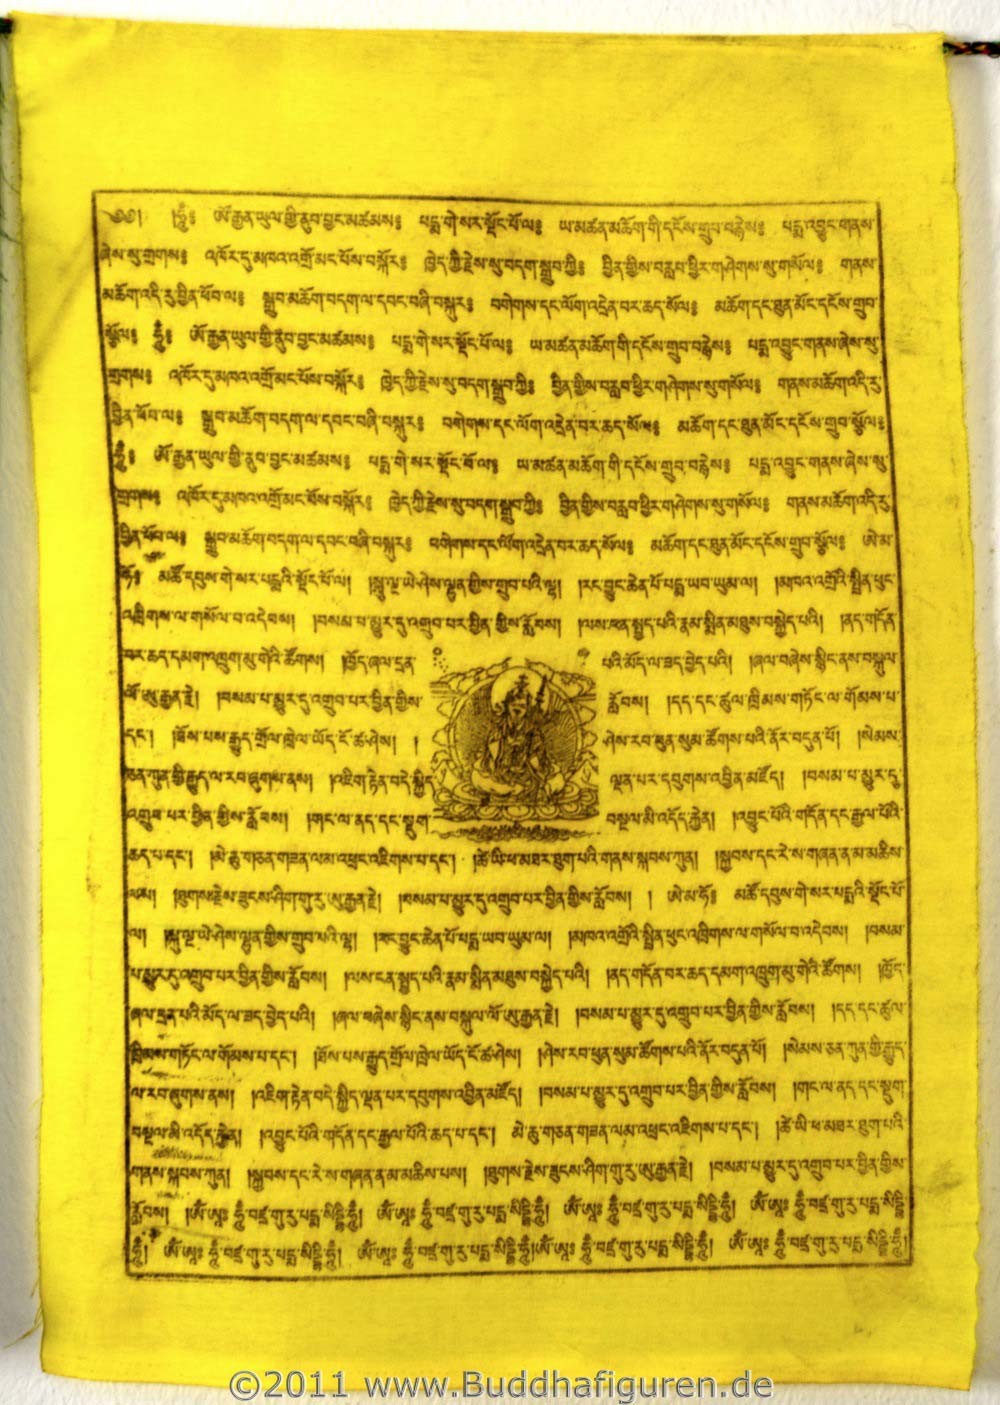 ༄༅། །ཧཱུྃ༔ ཨོ་རྒྱན་ཡུལ་གྱི་ནུབ་བྱང་མཚམས༔ པདྨ་གེ་སར་སྡོང་པོ་ལ༔ ཡ་མཚན་མཆོག་གི་དངོས་གྲུབ་བརྙེས༔ པདྨ་འབྱུང་གནས་
ཞེས་སུ་གྲགས༔ འཁོར་དུ་མཁའ་འགྲོ་མང་པོས་བསྐོར༔ ཁྱེད་ཀྱི་རྗེས་སུ་བདག་སྒྲུབ་ཀྱི༔ བྱིན་གྱིས་བརླབ་ཕྱིར་གཤེགས་སུ་གསོལ༔ གནས་
མཆོག་འདི་རུ་བྱིན་ཕོབ་ལ༔ སྒྲུབ་མཆོག་བདག་ལ་དབང་བཞི་བསྐུར༔ བགེགས་དང་ལོག་འདྲེན་བར་ཆད་སོལ༔ མཆོག་དང་ཐུན་མོང་དངོས་གྲུབ་
སྩོལ༔ ཧཱུྃ༔ ཨོ་རྒྱན་ཡུལ་གྱི་ནུབ་བྱང་མཚམས༔ པདྨ་གེ་སར་སྡོང་པོ་ལ༔ ཡ་མཚན་མཆོག་གི་དངོས་གྲུབ་བརྙེས༔ པདྨ་འབྱུང་གནས་ཞེས་སུ་
གྲགས༔ འཁོར་དུ་མཁའ་འགྲོ་མང་པོས་བསྐོར༔ ཁྱེད་ཀྱི་རྗེས་སུ་བདག་སྒྲུབ་ཀྱི༔ བྱིན་གྱིས་བརླབ་ཕྱིར་གཤེགས་སུ་གསོལ༔ གནས་མཆོག་འདི་རུ་
བྱིན་ཕོབ་ལ༔ སྒྲུབ་མཆོག་བདག་ལ་དབང་བཞི་བསྐུར༔ བགེགས་དང་ལོག་འདྲེན་བར་ཆད་སོལ༔ མཆོག་དང་ཐུན་མོང་དངོས་གྲུབ་སྩོལ༔
ཧཱུྃ༔ ཨོ་རྒྱན་ཡུལ་གྱི་ནུབ་བྱང་མཚམས༔ པདྨ་གེ་སར་སྡོང་པོ་ལ༔ ཡ་མཚན་མཆོག་གི་དངོས་གྲུབ་བརྙེས༔ པདྨ་འབྱུང་གནས་ཞེས་སུ་
གྲགས༔ འཁོར་དུ་མཁའ་འགྲོ་མང་པོས་བསྐོར༔ ཁྱེད་ཀྱི་རྗེས་སུ་བདག་སྒྲུབ་ཀྱི༔ བྱིན་གྱིས་བརླབ་ཕྱིར་གཤེགས་སུ་གསོལ༔ གནས་མཆོག་འདི་རུ་
བྱིན་ཕོབ་ལ༔ སྒྲུབ་མཆོག་བདག་ལ་དབང་བཞི་བསྐུར༔ བགེགས་དང་ལོག་འདྲེན་བར་ཆད་སོལ༔ མཆོག་དང་ཐུན་མོང་དངོས་གྲུབ་སྩོལ༔ ཨེ་མ་
ཧོ༔ མཚོ་དབུས་གེ་སར་པདྨའི་སྡོང་པོ་ལ། །སྐུ་ལྔ་ཡེ་ཤེས་ལྷུན་གྱིས་གྲུབ་པའི་ལྷ། །རང་བྱུང་ཆེན་པོ་པདྨ་ཡབ་ཡུམ་ལ། །མཁའ་འགྲོའི་སྤྲིན་ཕུང་
འཁྲིགས་ལ་གསོལ་བ་འདེབས། །བསམ་པ་མྱུར་དུ་འགྲུབ་པར་བྱིན་གྱིས་རློབས། །ལས་ངན་སྤྱད་པའི་རྣམ་སྨིན་མཐུས་བསྐྱེད་པའི། །ནད་གདོན་
བར་ཆད་དམག་འཁྲུག་མུ་གེའི་ཚོགས། །ཁྱོད་ཞལ་དྲན་ པའི་མོད་ལ་ཟད་བྱེད་པའི། །ཞལ་བཞེས་སྙིང་ནས་བསྐུལ་
ལོ་ཨུ་རྒྱན་རྗེ། །བསམ་པ་མྱུར་དུ་འགྲུབ་པར་བྱིན་གྱིས་ རློབས། །དད་དང་ཚུལ་ཁྲིམས་གཏོང་ལ་གོམས་པ་
དང་། །ཐོས་པས་རྒྱུད་གྲོལ་ཁྲེལ་ཡོད་ངོ་ཚ་ཤེས། ། ཤེས་རབ་ཕུན་སུམ་ཚོགས་པའི་ནོར་བདུན་པོ། །སེམས་
ཅན་ཀུན་གྱི་རྒྱུད་ལ་རབ་ཞུགས་ནས། །འཇིག་རྟེན་བདེ་སྐྱིད་ ལྡན་པར་དབུགས་འབྱིན་མཛོད། །བསམ་པ་མྱུར་དུ་
འགྲུབ་པར་བྱིན་གྱིས་རློབས། །གང་ལ་ནད་དང་སྡུག་ བསྔལ་མི་འདོད་རྐྱེན། །འབྱུང་པོའི་གདོན་དང་རྒྱལ་པོའི་
ཆད་པ་དང་། །མེ་ཆུ་གཅན་གཟན་ལམ་འཕྲང་འཇིགས་པ་དང་། །ཚེ་ཡི་ཕ་མཐར་ཐུག་པའི་གནས་སྐབས་ཀུན། །སྐྱབས་དང་རེ་ས་གཞན་ན་མ་མཆིས་
པས། །ཐུགས་རྗེས་ཟུངས་ཤིག་གུ་རུ་ཨུ་རྒྱན་རྗེ། །བསམ་པ་མྱུར་དུ་འགྲུབ་པར་བྱིན་གྱིས་རློབས། ། ཨེ་མ་ཧོ༔ མཚོ་དབུས་གེ་སར་པདྨའི་སྡོང་པོ་
ལ། །སྐུ་ལྔ་ཡེ་ཤེས་ལྷུན་གྱིས་གྲུབ་པའི་ལྷ། །རང་བྱུང་ཆེན་པོ་པདྨ་ཡབ་ཡུམ་ལ། །མཁའ་འགྲོའི་སྤྲིན་ཕུང་འཁྲིགས་ལ་གསོལ་བ་འདེབས། །བསམ་
པ་མྱུར་དུ་འགྲུབ་པར་བྱིན་གྱིས་རློབས། །ལས་ངན་སྤྱད་པའི་རྣམ་སྨིན་མཐུས་བསྐྱེད་པའི། །ནད་གདོན་བར་ཆད་དམག་འཁྲུག་མུ་གེའི་ཚོགས། །ཁྱོད་
ཞལ་དྲན་པའི་མོད་ལ་ཟད་བྱེད་པའི། །ཞལ་བཞེས་སྙིང་ནས་བསྐུལ་ལོ་ཨུ་རྒྱན་རྗེ། །བསམ་པ་མྱུར་དུ་འགྲུབ་པར་བྱིན་གྱིས་རློབས། །དད་དང་ཚུལ་
ཁྲིམས་གཏོང་ལ་གོམས་པ་དང་། །ཐོས་པས་རྒྱུད་གྲོལ་ཁྲེལ་ཡོད་ངོ་ཚ་ཤེས། །ཤེས་རབ་ཕུན་སུམ་ཚོགས་པའི་ནོར་བདུན་པོ། །སེམས་ཅན་ཀུན་གྱི་རྒྱུད་
ལ་རབ་ཞུགས་ནས། །འཇིག་རྟེན་བདེ་སྐྱིད་ལྡན་པར་དབུགས་འབྱིན་མཛོད། །བསམ་པ་མྱུར་དུ་འགྲུབ་པར་བྱིན་གྱིས་རློབས། །གང་ལ་ནད་དང་སྡུག་
བསྔལ་མི་འདོད་རྐྱེན། །འབྱུང་པོའི་གདོན་དང་རྒྱལ་པོའི་ཆད་པ་དང་། མེ་ཆུ་གཅན་གཟན་ལམ་འཕྲང་འཇིགས་པ་དང་། །ཚེ་ཡི་ཕ་མཐར་ཐུག་པའི་
གནས་སྐབས་ཀུན། །སྐྱབས་དང་རེ་ས་གཞན་ན་མ་མཆིས་པས། །ཐུགས་རྗེས་ཟུངས་ཤིག་གུ་རུ་ཨུ་རྒྱན་རྗེ། །བསམ་པ་མྱུར་དུ་འགྲུབ་པར་བྱིན་གྱིས་
རློབས། །ༀ་ཨཱཿ ཧཱུྃ་བཛྲ་གུ་རུ་པདྨ་སིདྡྷི་ཧཱུྃ། ༀ་ཨཱཿ ཧཱུྃ་བཛྲ་གུ་རུ་པདྨ་སིདྡྷི་ཧཱུྃ། ༀ་ཨཱཿ ཧཱུྃ་བཛྲ་གུ་རུ་པདྨ་སིདྡྷི་ཧཱུྃ། ༀ་ཨཱཿ ཧཱུྃ་བཛྲ་གུ་རུ་པདྨ་སིདྡྷི་
ཧཱུྃ། ༀ་ཨཱཿ ཧཱུྃ་བཛྲ་གུ་རུ་པདྨ་སིདྡྷི་ཧཱུྃ། ༀ་ཨཱཿ ཧཱུྃ་བཛྲ་གུ་རུ་པདྨ་སིདྡྷི་ཧཱུྃ།ༀ་ཨཱཿ ཧཱུྃ་བཛྲ་གུ་རུ་པདྨ་སིདྡྷི་ཧཱུྃ། ༀ་ཨཱཿ ཧཱུྃ་བཛྲ་གུ་རུ་པདྨ་སིདྡྷི་ཧཱུྃ།
©2011 www.Buddhafiguren.de